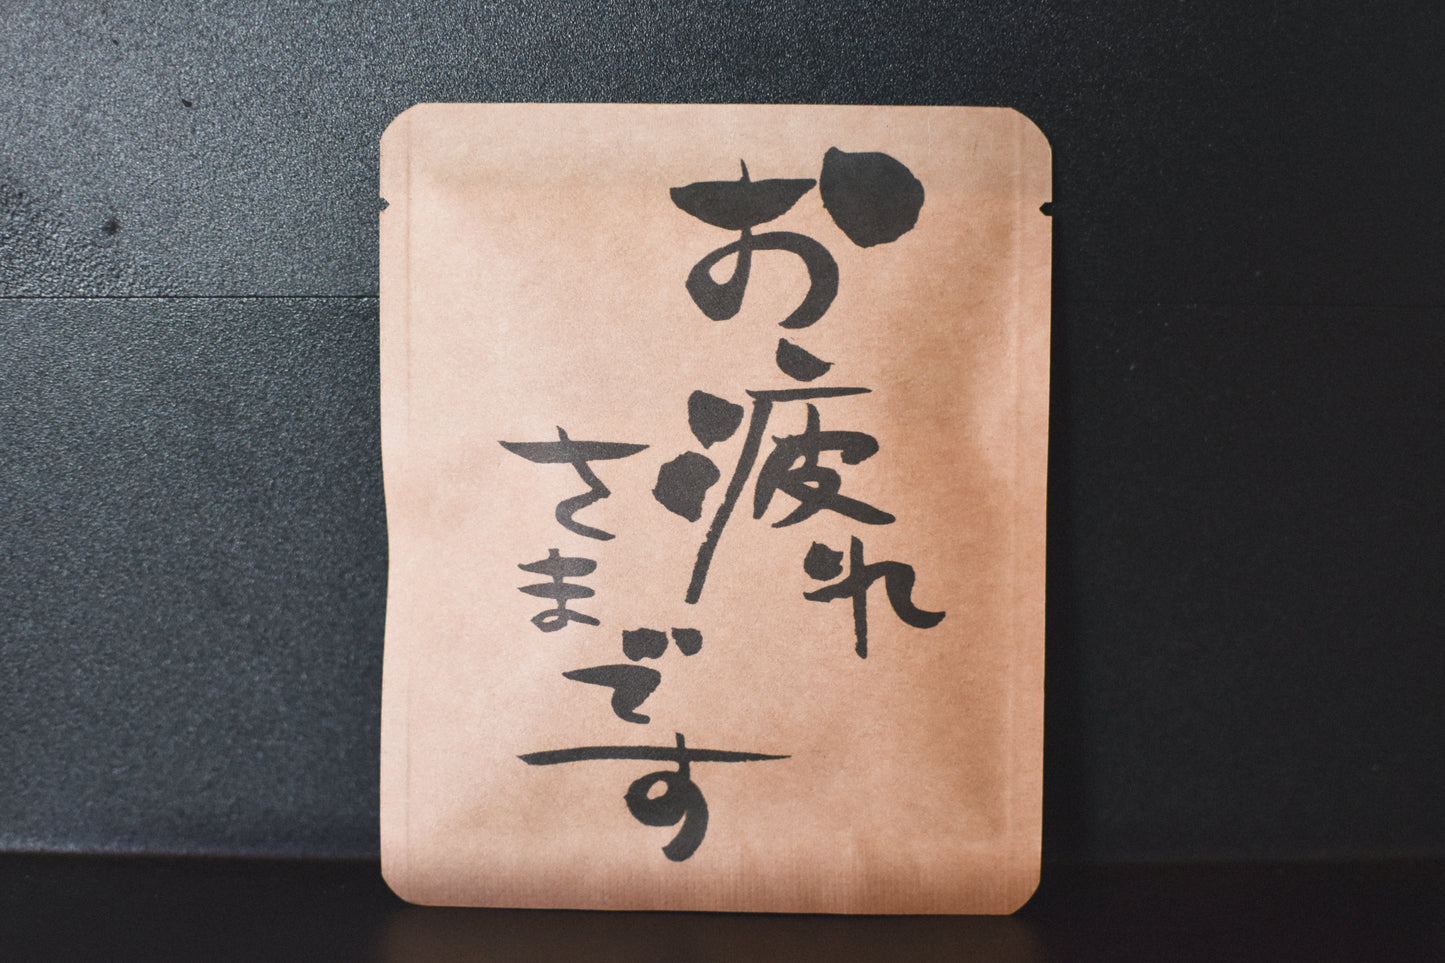 お疲れ
さまです